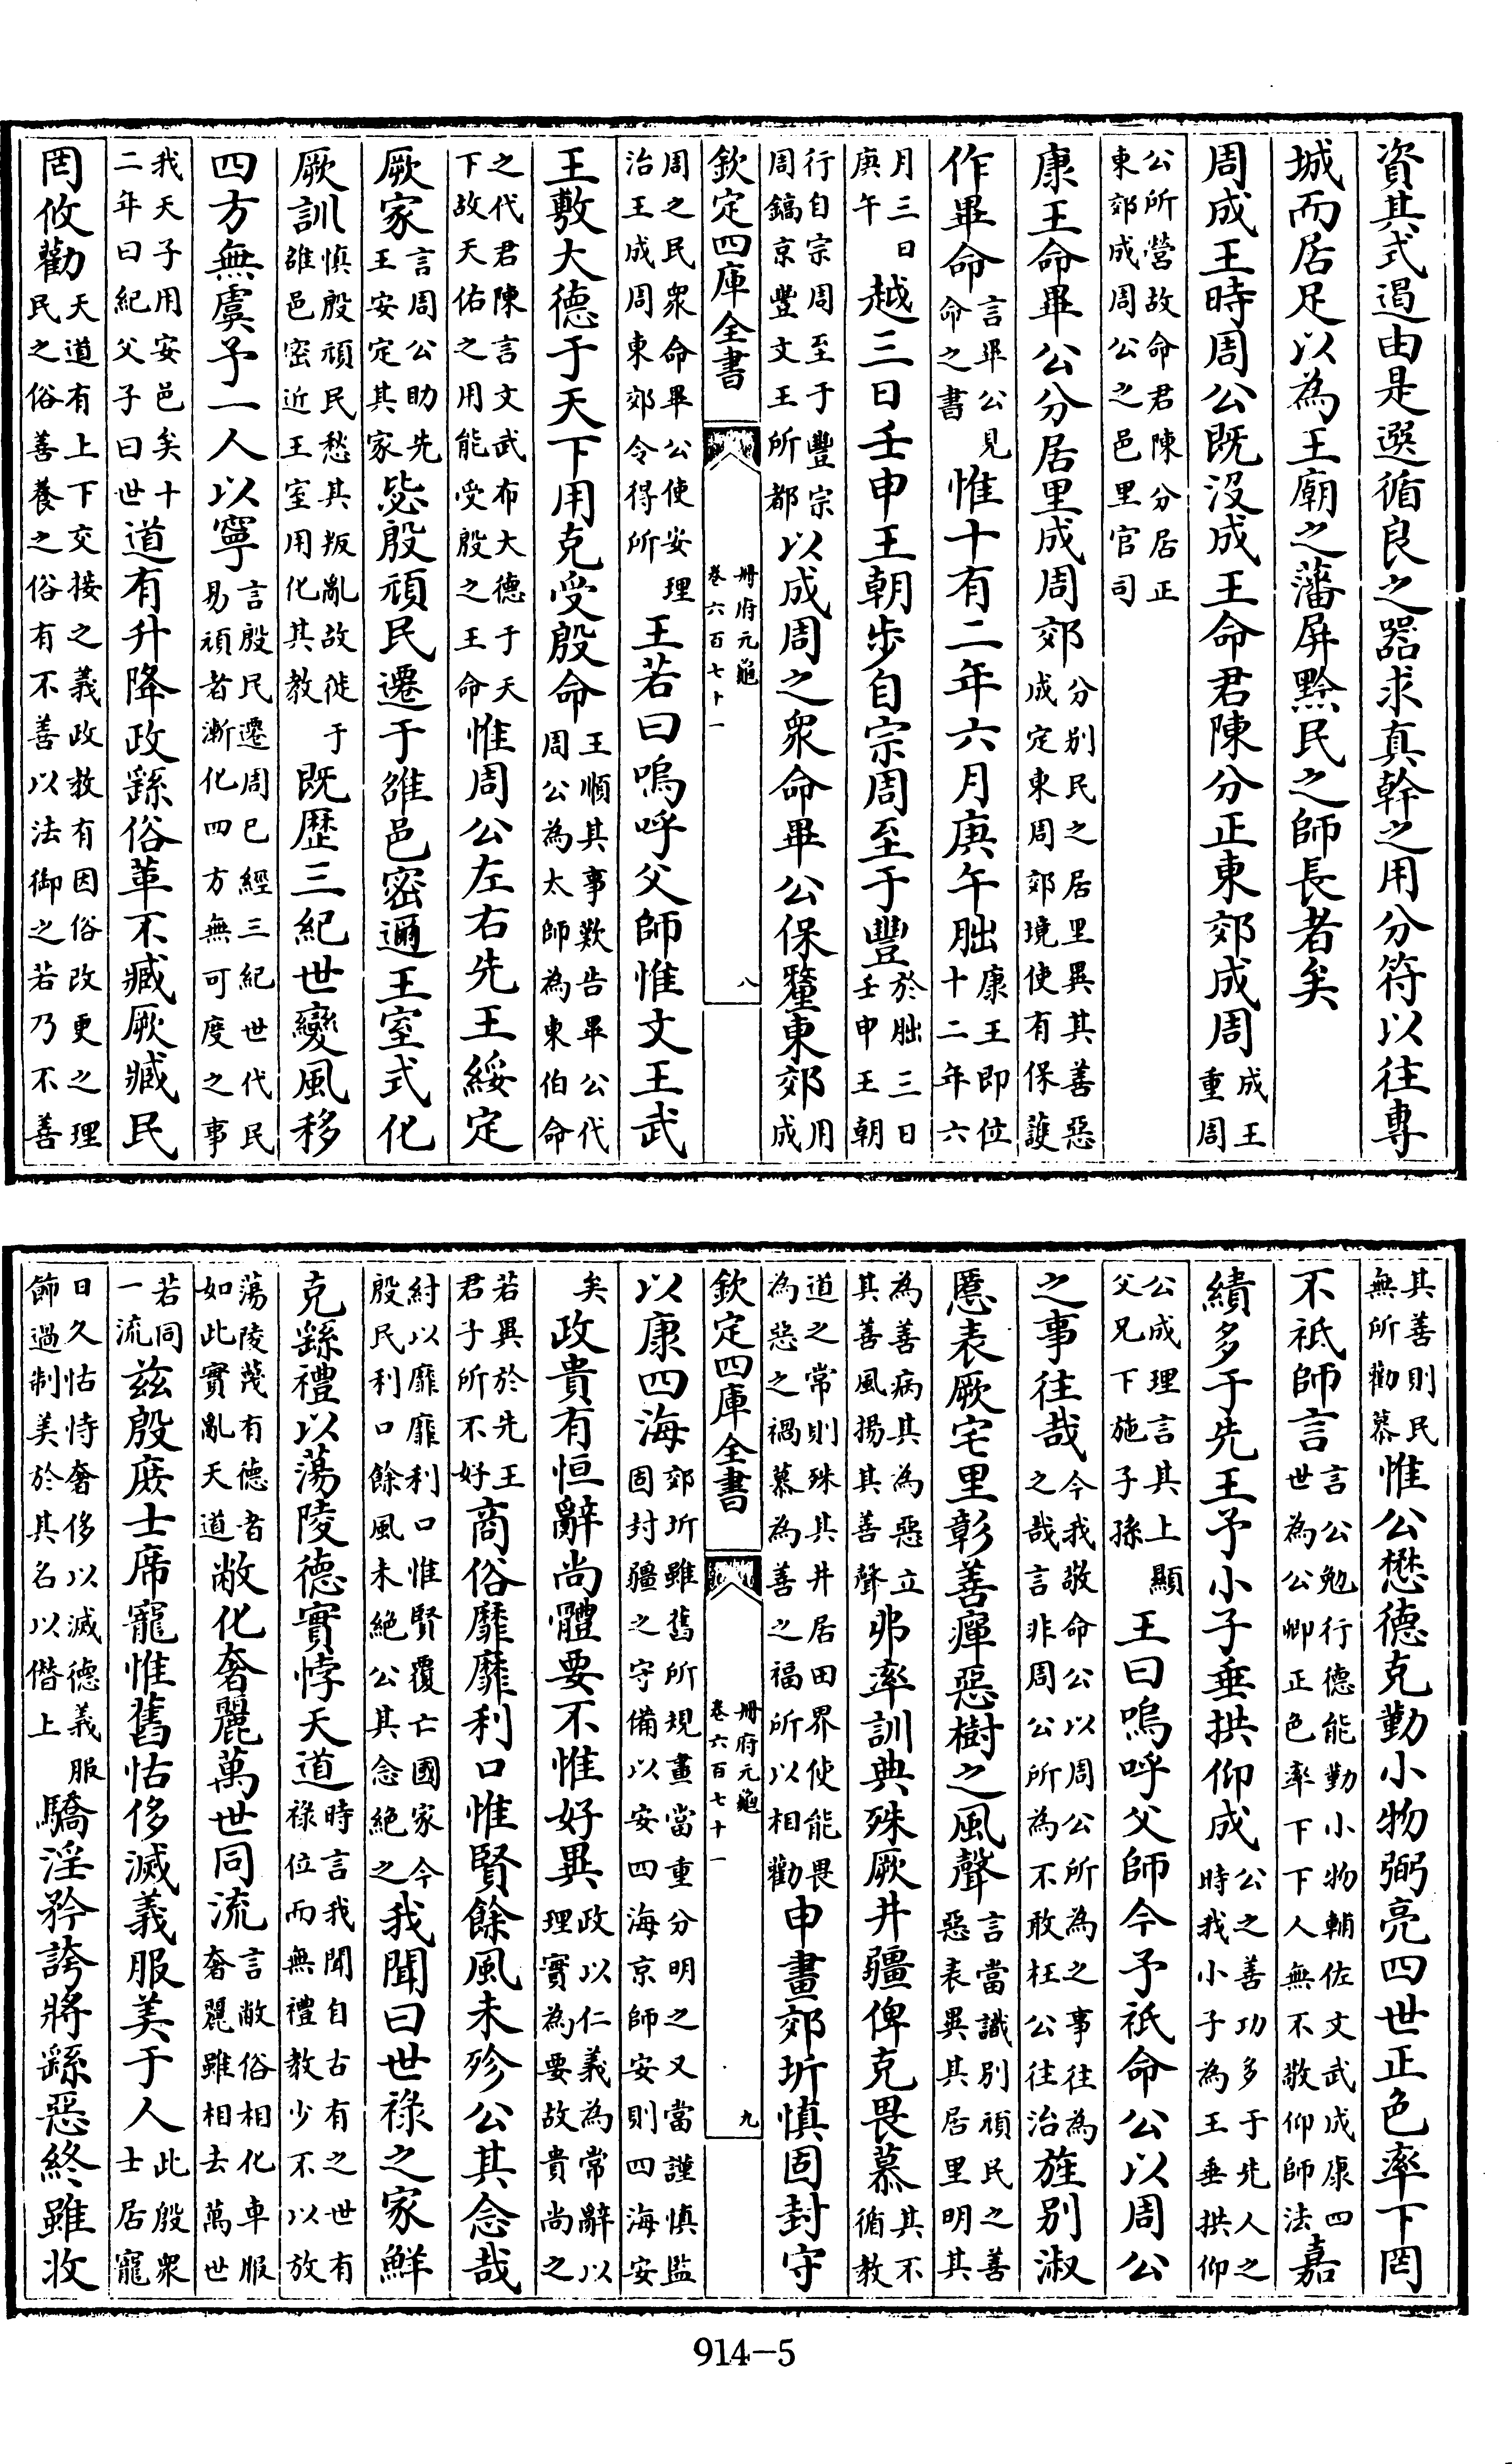 資其式遏由是選循良之器求真幹之用分符以往專
城而居足以為王廟之藩屏黔民之師長者矣
周成王時周公既沒成王命君陳分正東郊成周成王重周
公所營故命君陳分居正東郊成周公之邑里官司
康王命畢公分居里成周郊分別民之居里異其善惡成定東周郊境使有保護
作畢命言畢公見命之書惟十有二年六月庚午朏康王即位十二年六
月三日庚午越三日壬申王朝步自宗周至于豐於朏三日壬申王朝
行自宗周至于豐宗周鎬京豐文王所都以成周之衆命畢公保釐東郊用成
欽定四庫全書
冊府元龜
卷六百七十一
八
周之民衆命畢公使安理治王成周東郊令得所王若曰嗚呼父師惟文王武
王敷大德于天下用克受殷命王順其事歎告畢公代周公為太師為東伯命
之代君陳言文武布大德于天下故天佑之用能受殷之王命惟周公左右先王綏定
厥家言周公助先王安定其家毖殷頑民遷于雒邑密邇王室式化
厥訓慎殷頑民愁其叛亂故徙于雒邑密近王室用化其教既歷三紀世變風移
四方無虞予一人以寧言殷民遷周已經三紀世代民易頑者漸化四方無可度之事
我天子用安邑矣十二年曰紀父子曰世道有升降政繇俗革不臧厥臧民
罔攸勸天道有上下交接之義政教有因俗改更之理民之俗善養之俗有不善以法御之若乃不善
其善則民無所勸慕惟公懋德克勤小物弼亮四世正色率下罔
不祗師言言公勉行德能勤小物輔佐文武成康四世為公卿正色率下下人無不敬仰師法嘉
績多于先王予小子垂拱仰成公之善功多于先人之時我小子為王垂拱仰
公成理言其上顯父兄下施子孫王曰嗚呼父師今予祗命公以周公
之事往哉今我敬命公以周公所為之事往為之哉言非周公所為不敢枉公往治旌別淑
慝表厥宅里彰善癉惡樹之風聲言當識別頑民之善惡表異其居里明其
為善病其為惡立其善風揚其善聲弗率訓典殊厥井疆俾克畏慕其不循教
道之常則殊其井居田界使能畏為惡之禍慕為善之福所以相勸申畫郊圻慎固封守
欽定四庫全書
冊府元龜
卷六百七十一
九
以康四海郊圻雖舊所規畫當重分明之又當謹慎監固封疆之守備以安四海京師安則四海安
矣政貴有恒辭尚體要不惟好異政以仁義為常辭以理實為要故貴尚之
若異於先王君子所不好商俗靡靡利口惟賢餘風未殄公其念哉
紂以靡靡利口惟賢覆亡國家今殷民利口餘風未絕公其念絕之我聞曰世祿之家鮮
克繇禮以蕩陵德實悖天道時言我聞自古有之世有祿位而無禮教少不以放
蕩陵蔑有德者如此實亂天道敝化奢麗萬世同流言敝俗相化車服奢麗雖相去萬世
若同一流茲殷庶士席寵惟舊怙侈滅義服美于人此殷衆士居寵
日久怙恃奢侈以滅德義服飾過制美於其名以僭上驕淫矜誇將繇惡終雖收
914-5